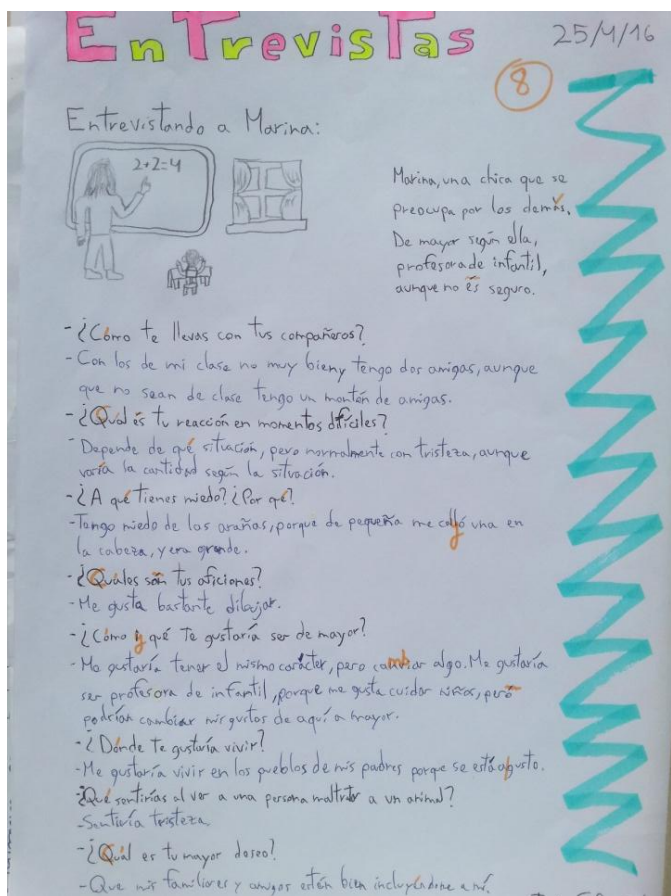 EnTrevisTas
25/4/16
8
Entrevistando a Marina:
2+2=4
Marina, una chica que se
preocupa por los demás.
De mayor según ella,
profesora de infantil,
aunque no és seguro.
-¿Cómo te llevas con tus compañeros?
-Con los de mi clase no muy bien y tengo dos amigas, aunque
que no sean de clase tengo un montón de amigas.
-¿Quál és tu reacción en momentos difíciles?
-Depende de qué situación, pero normalmente con tristeza, aunque
varía la cantidad según la situación.
-¿A qué tienes miedo? ¿Por qé?
-Tengo miedo de las arañas, porque de pequeña me cayó una en
la cabeza, y era grande.
-¿Quáles són tus aficiones?
-Me gusta bastante dibujar.
-¿Cómo y qué te gustaría ser de mayor?
-Me gustaría tener el mismo carácter, pero cambiar algo. Me gustaría
ser profesora de infantil, porque me gusta cuidar niños, peró
podrían cambiar mis gustos de aquí a mayor.
-¿Dónde te gustaría vivir?
-Me gustaría vivir en los pueblos de mis padres porque se está agusto.
-¿Qué sentirías al ver a una persona maltratar a un animal?
-Sentiría tristeza.
-¿Quál es tu mayor deseo?
-Que mis familiares y amigos estén bien incluyéndome a mí.